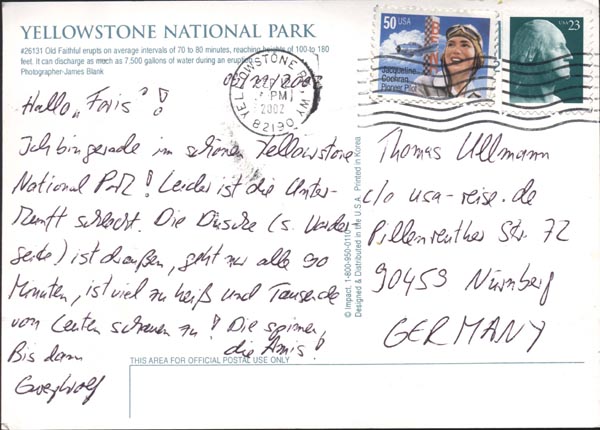 YELLOWSTONE NATIONAL PARK
#26131 Old Faithful erupts on average intervals of 70 to 80 minutes, reaching heights of 100 to 180
feet. It can discharge as much as 7,500 gallons of water during an eruption.
Photographer-James Blank
50 USA
Jacqueline
Cochran
Pioneer Pilot
USA 23
YELLOWSTONE WY
PM
2002
82190
Hallo „Foris"!
Ich bin gerade im schönen Yellowstone
National Park! Leider ist die Unter-
kunft schlecht. Die Dusche (s. Vorder-
seite) ist draußen, geht nur alle 90
Minuten, ist viel zu heiß und Tausende
von Leuten schauen zu! Die spinnen,
die Amis!
Bis dann
Thomas Ullmann
c/o usa-reise.de
Pillenreuther Str. 72
90459 Nürnberg
GERMANY
© Impact, 1-800-950-0110
Designed & Distributed in the U.S.A. Printed in Korea
THIS AREA FOR OFFICIAL POSTAL USE ONLY